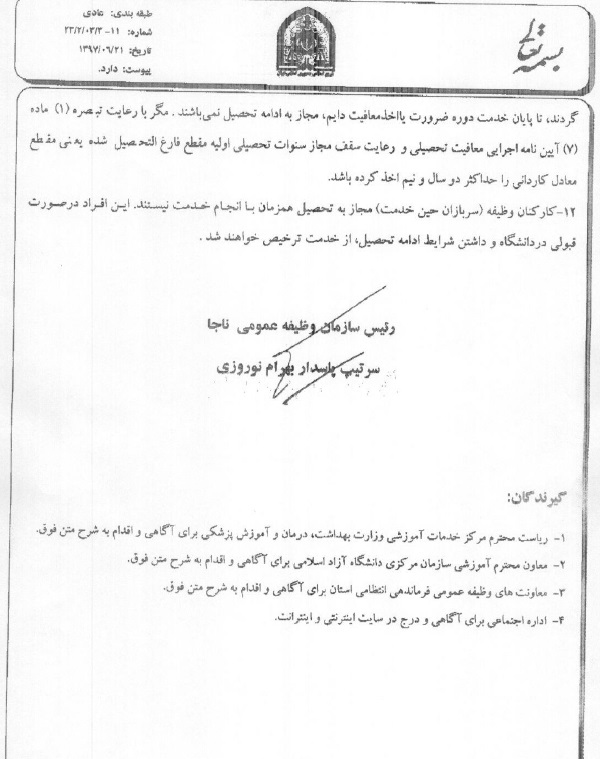 بسمه تعالی
طبقه بندی: عادی
شماره: ۱۱-۲۳/۲/۰۳/۳
تاریخ: ۱۳۹۷/۰۶/۲۱
پیوست: دارد.
گردند، تا پایان خدمت دوره ضرورت یااخذمعافیت دایم، مجاز به ادامه تحصیل نمی‌باشند. مگر با رعایت تبصره (۱) ماده
(۷) آیین نامه اجرایی معافیت تحصیلی و رعایت سقف مجاز سنوات تحصیلی اولیه مقطع فارغ التحصیل شده یعنی مقطع
معادل کاردانی را حداکثر دو سال و نیم اخذ کرده باشد.
۱۲-کارکنان وظیفه (سربازان حین خدمت) مجاز به تحصیل همزمان با انجام خدمت نیستند. این افراد درصورت
قبولی دردانشگاه و داشتن شرایط ادامه تحصیل، از خدمت ترخیص خواهند شد.
رئیس سازمان وظیفه عمومی ناجا
سرتیپ پاسدار بهرام نوروزی
گیرندگان:
۱- ریاست محترم مرکز خدمات آموزشی وزارت بهداشت، درمان و آموزش پزشکی برای آگاهی و اقدام به شرح متن فوق.
۲- معاون محترم آموزشی سازمان مرکزی دانشگاه آزاد اسلامی برای آگاهی و اقدام به شرح متن فوق.
۳- معاونت های وظیفه عمومی فرماندهی انتظامی استان برای آگاهی و اقدام به شرح متن فوق.
۴- اداره اجتماعی برای آگاهی و درج در سایت اینترنتی و اینترانت.